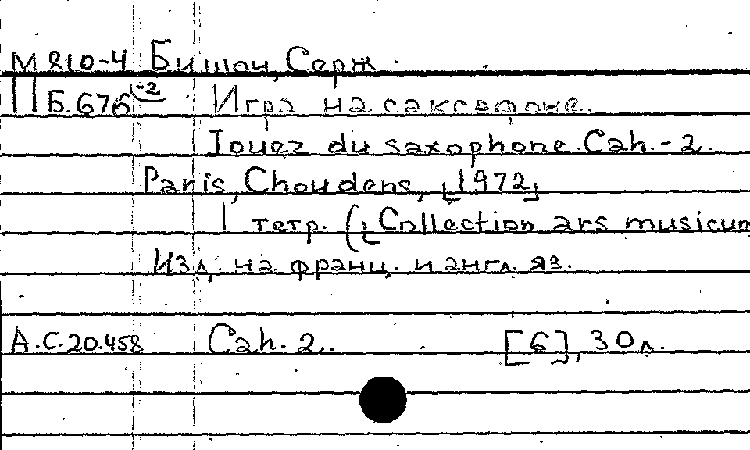 М 810-4 Бишон, Серж.
П Б.676 -2 Игра на саксофоне.
Jouez du saxophone. Cah.-2.
Paris, Choudens, [1972]
1 тетр. ([Collection ars musicum
Изд. на франц. и англ. яз.
А.С.20.458 Cah. 2. [6], 30 л.